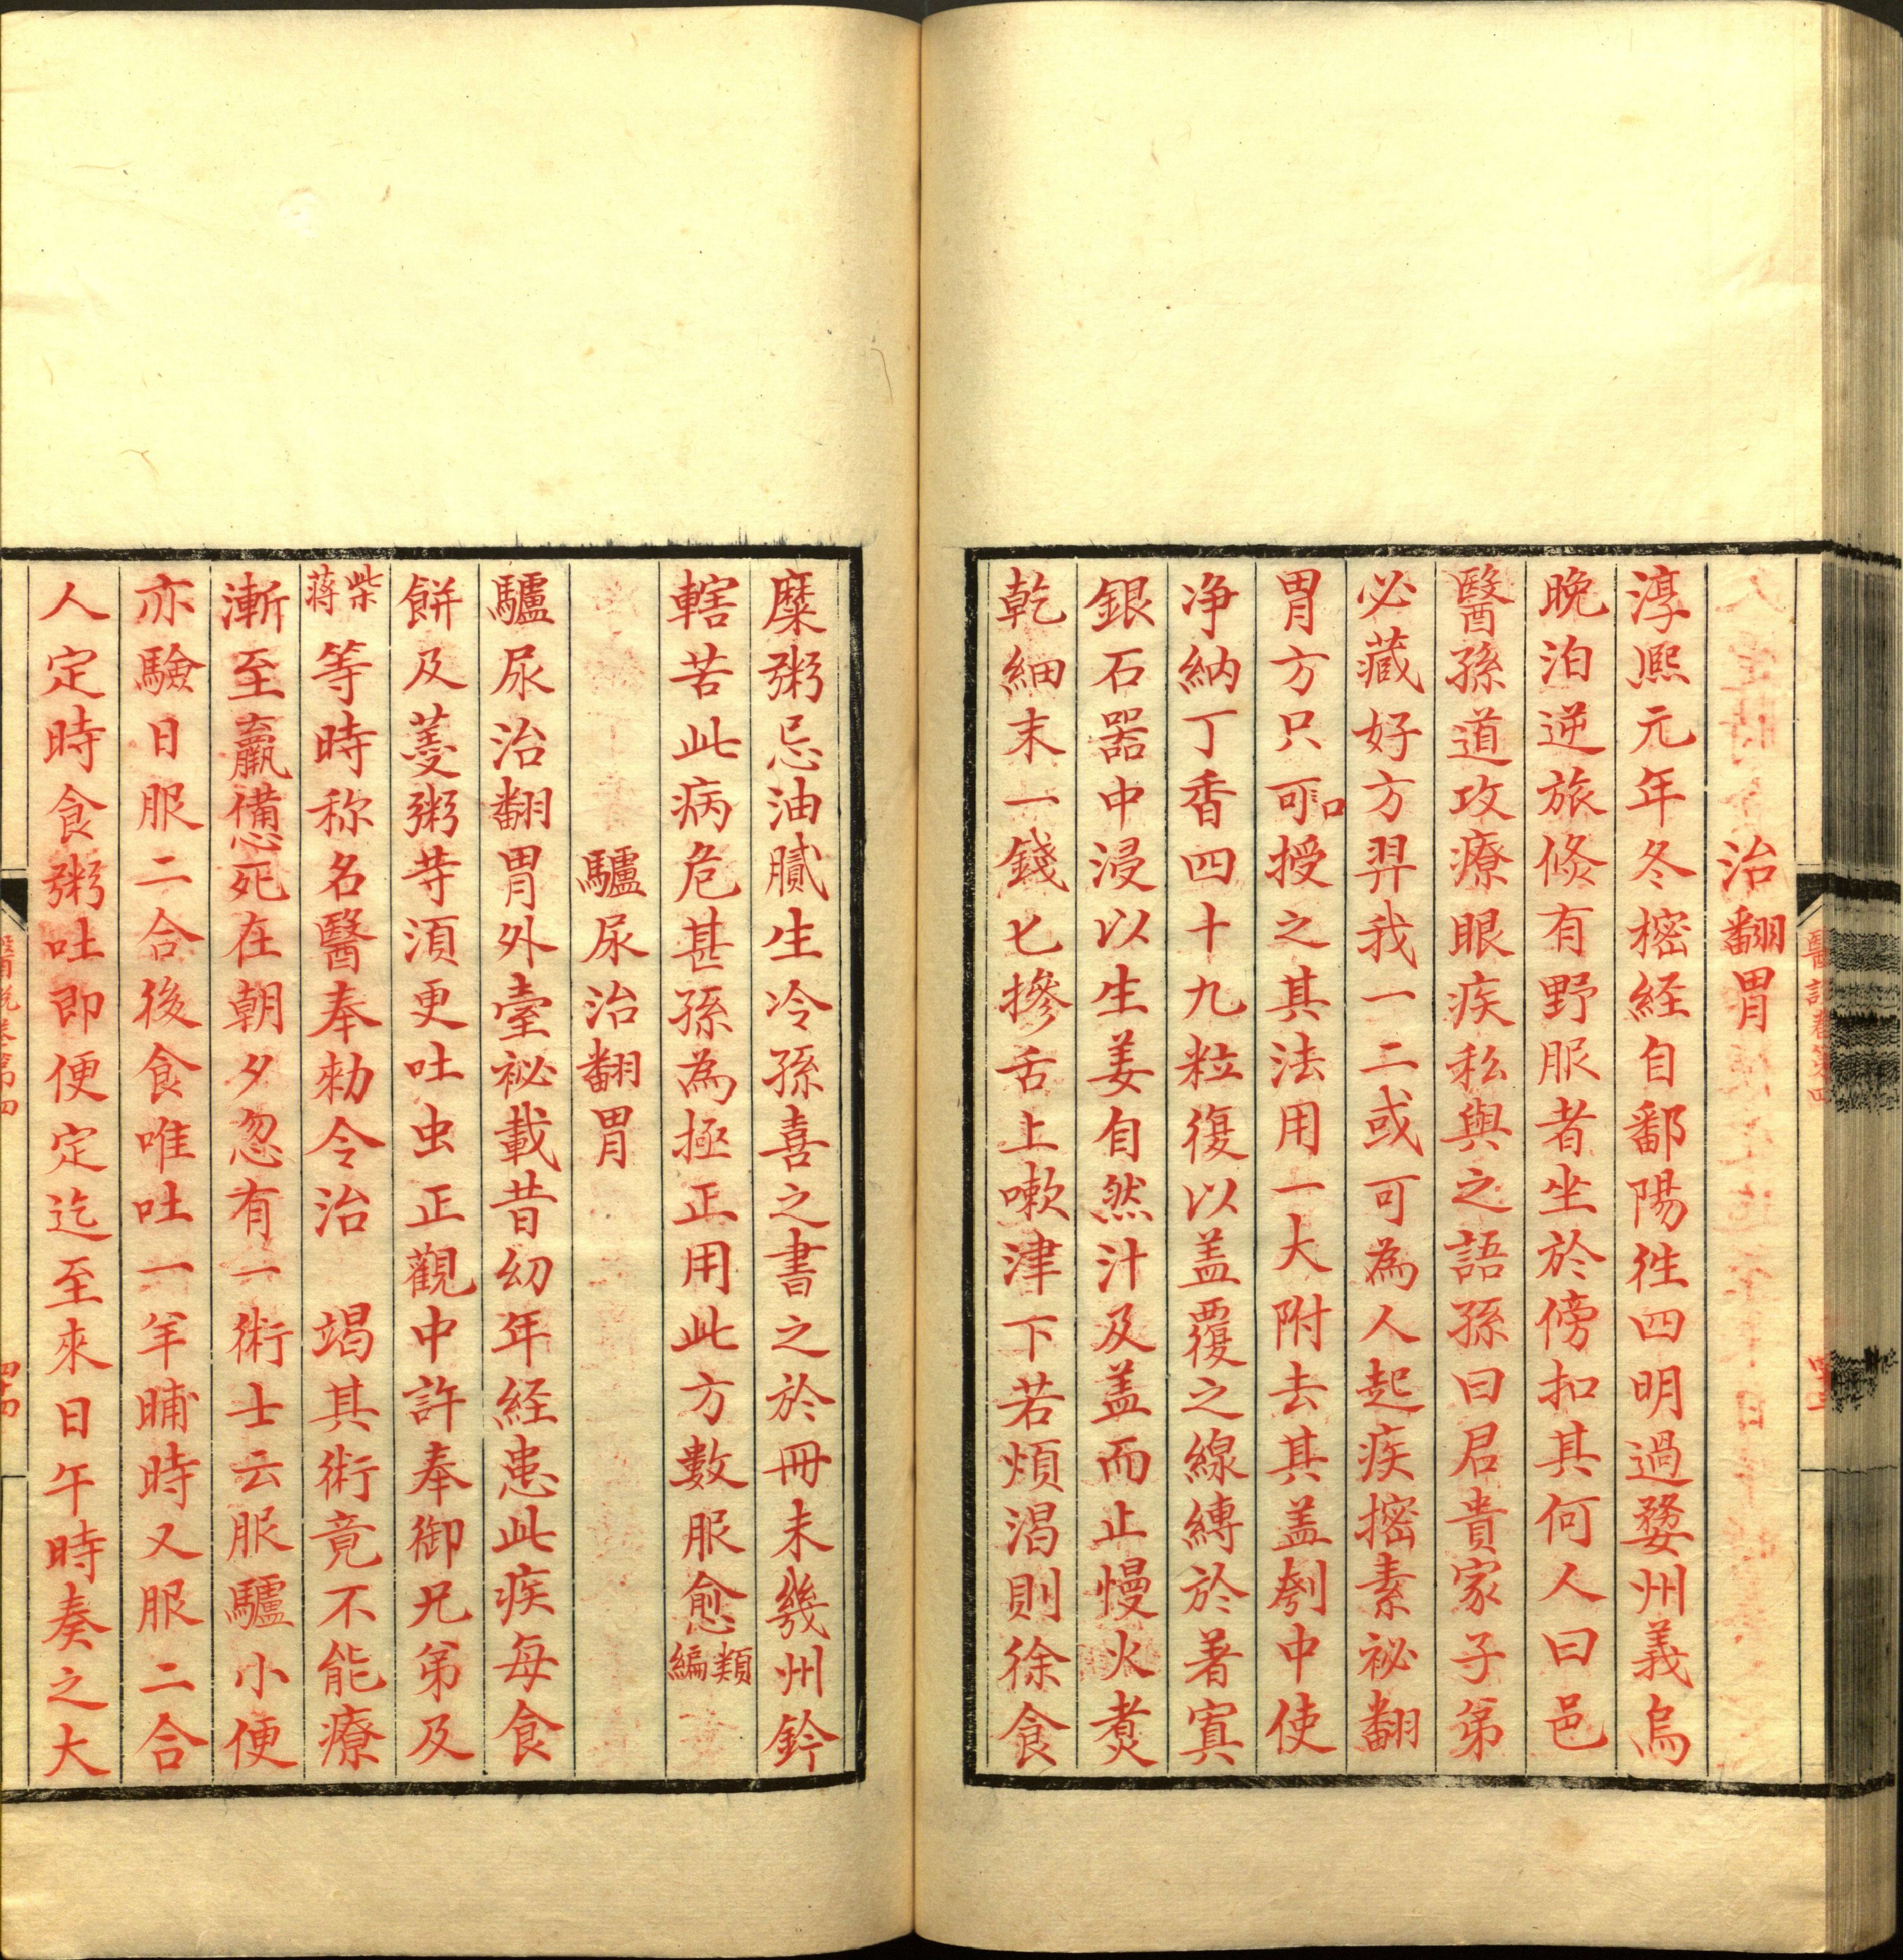 治翻胃
淳熙元年冬樒経自鄱陽徃四明過婺州義烏
晚泊逆旅倐有野服者坐於傍扣其何人曰邑
醫孫道攻療眼疾私與之語孫曰君貴家子弟
必藏好方羿我一二或可為人起疾㩉素祕翻
胃方只可口授之其法用一大附去其盖刳中使
净納丁香四十九粒復以盖覆之線縛於著寘
銀石器中浸以生姜自然汁及盖而止慢火煑
乾細末一錢匕摻舌上嗽津下若煩渴則徐食
糜粥忌油膩生冷孫喜之書之於冊未幾州鈐
轄苦此病危甚孫為極正用此方數服愈類編
驢尿治翻胃
驢尿治翻胃外臺祕載昔幼年経患此疾每食
餅及䕪粥䒭湏更吐虫正觀中許奉御兄弟及
柴蔣等時称名醫奉勑令治　竭其術竟不能療
漸至羸憊死在朝夕忽有一術士云服驢小便
亦驗日服二合後食唯吐一半晡時又服二合
人定時食粥吐即便定迄至來日午時奏之大
醫説卷第四
醫説卷第四
四十四